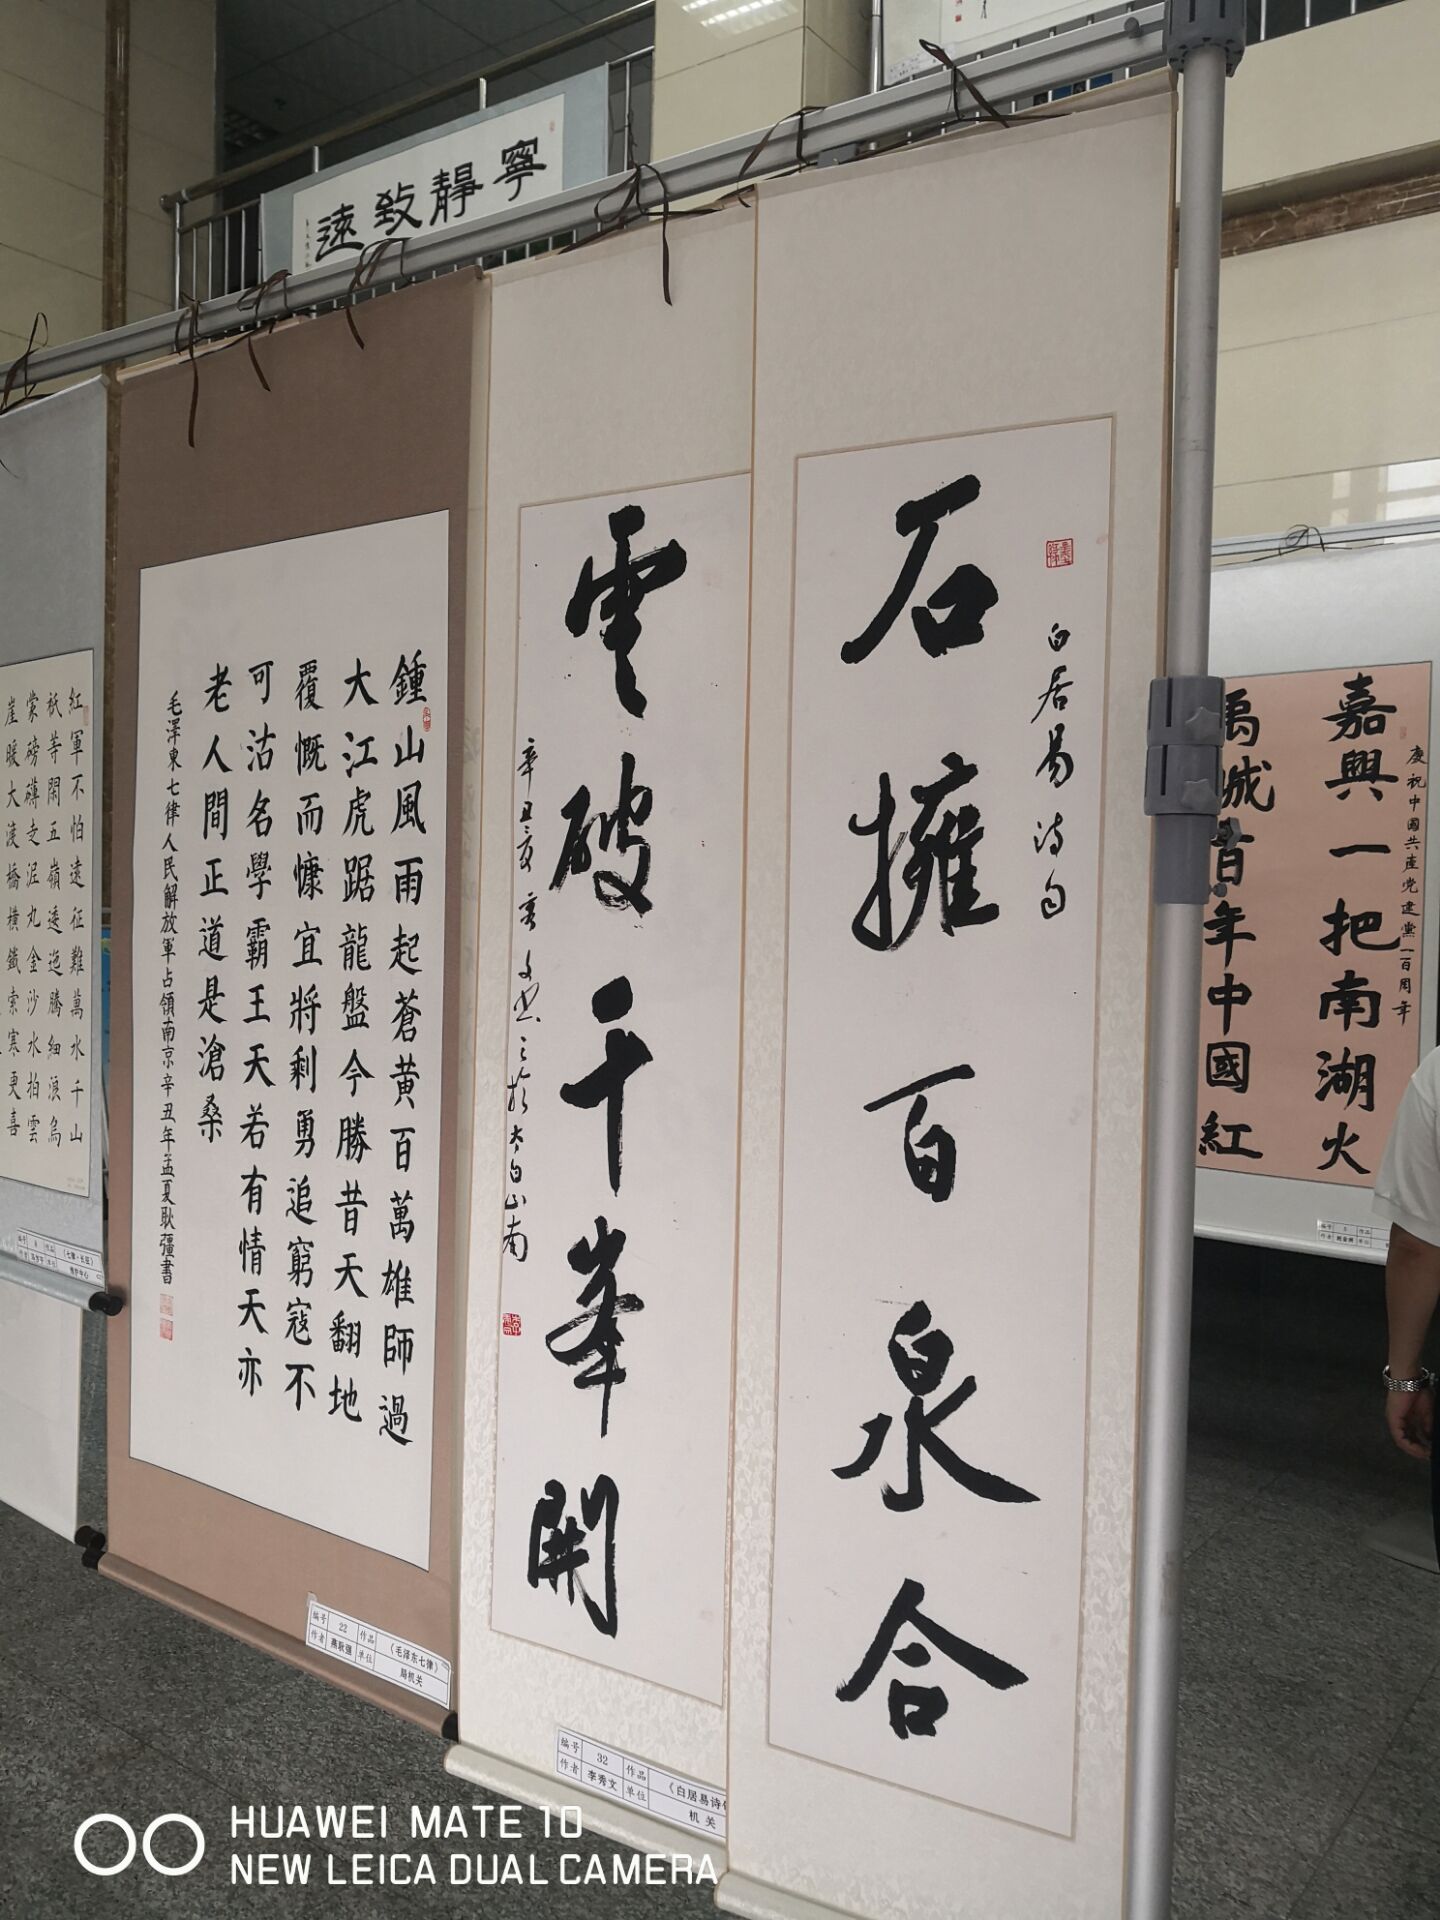 寧靜致遠
石擁百泉合
白居易诗句
雲破千峯開
鍾山風雨起蒼黄百萬雄師過
大江虎踞龍盤今勝昔天翻地
覆慨而慷宜將剩勇追窮寇不
可沽名學霸王天若有情天亦
老人間正道是滄桑
毛澤東七律人民解放軍占領南京辛丑年孟夏耿彊書
紅軍不怕遠征難萬水千山
衹等閑五嶺逶迤騰細浪烏
蒙磅礴走泥丸金沙水拍雲
崖暖大渡橋橫鐵索寒更喜
慶祝中國共産党建黨一百周年
嘉興一把南湖火
禹城百年中國紅
编号 22 作品 《毛泽东七律》
作者 单位 局机关
编号 32 作品 《白居易诗
作者 李秀文 单位 机关
编号 作品 《七律·长征》
作者 单位
编号 作品
作者 单位
HUAWEI MATE 10
NEW LEICA DUAL CAMERA